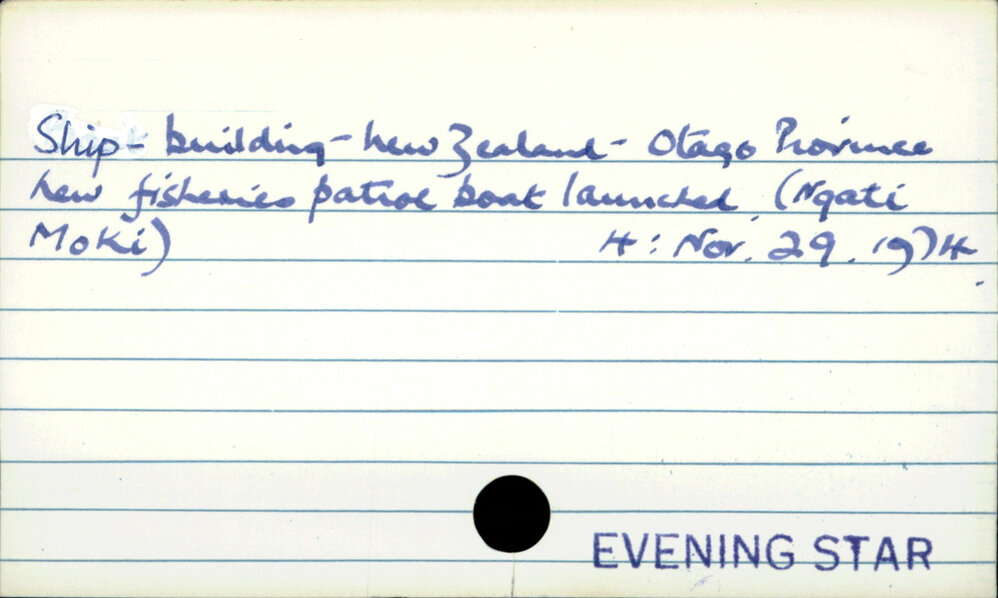 Ship-building - New Zealand - Otago Province
New fisheries patrol boat launched (Ngati
Moki) 4: Nov. 29. 1974.
EVENING STAR